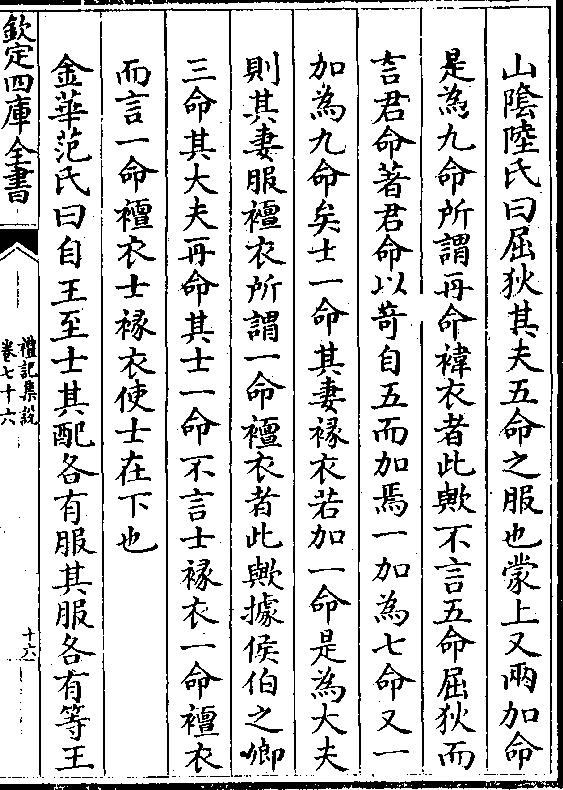 山陰陸氏曰屈狄其夫五命之服也蒙上又兩加命
是為九命所謂再命褘衣者此歟不言五命屈狄而
言君命著君命以苛自五而加焉一加為七命又一
加為九命矣士一命其妻褖衣若加一命是為大夫
則其妻服襢衣所謂一命襢衣者此歟據侯伯之卿
三命其大夫再命其士一命不言士褖衣一命襢衣
而言一命襢衣士褖衣使士在下也
金華范氏曰自王至士其配各有服其服各有等王
欽定四庫全書
禮記集說
卷七十六
十六